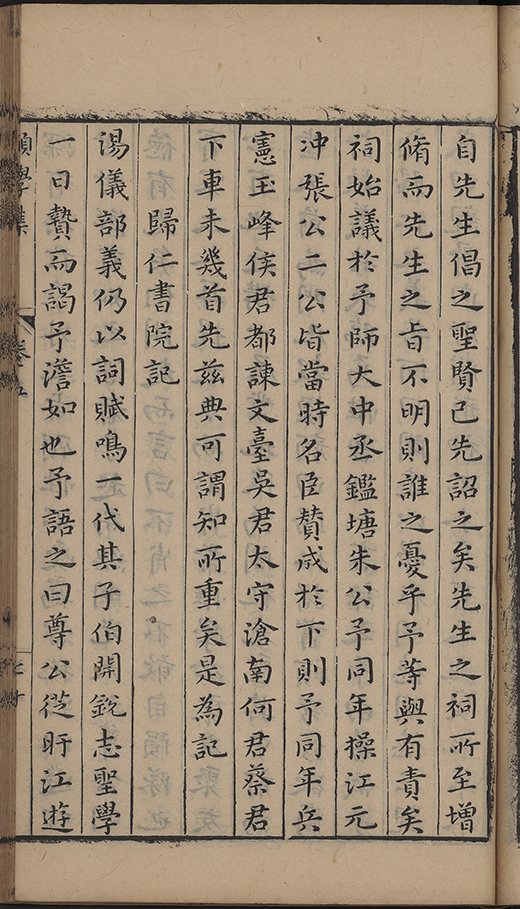 自先生倡之聖賢已先詔之矣先生之祠所至增
脩而先生之旨不明則誰之憂乎予等與有責矣
祠始議於予師大中丞鑑塘朱公予同年操江元
冲張公二公皆當時名臣賛成於下則予同年兵
憲玉峰侯君都諫文臺吳君太守滄南何君蔡君
下車未幾首先茲典可謂知所重矣是為記
歸仁書院記
湯儀部義仍以詞賦鳴一代其子伯開銳志聖學
一日贄而謁予澹如也予語之曰尊公從盱江遊
願學集
卷之五